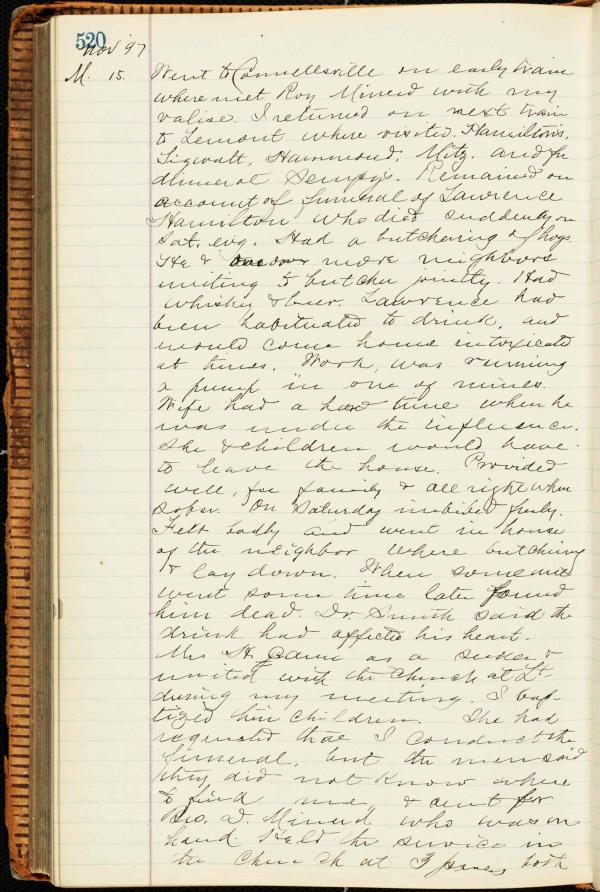 520
Nov '97
M. 15. Went to Connellsville on early train
where met Roy Minerd with my
valise. I returned on next train
to Lemont where visited. Hamiltons,
Sigwalt, Hammond, Mitz. and for
dinner at Sempys. Remained on
account of funeral of Lawrence
Hamilton who died suddenly on
Sat. evg. Had a butchering of hogs
He & more neighbors
uniting to butcher jointly. Had
whiskey & beer. Lawrence had
been habituated to drink, and
would come home intoxicated
at times. Work, was running
a pump in one of mines.
Wife had a hard time when he
was under the influence.
She & children would have
to leave the house. Provided
well, for family & all right when
sober. On Saturday imbibed freely.
Felt badly and went in house
of the neighbor where butchering
& lay down. When someone
went some time later found
him dead. Dr Smith said the
drink had affected his heart.
Mrs H. came as a seeker &
united with the Church at Lt.
during my meeting. I bap
tized their children. She had
requested that I conduct the
funeral, but the men said
they did not know where
to find me, & sent for
Bro. D. Minerd who was on
hand. Held the service in
the Church at 3 both